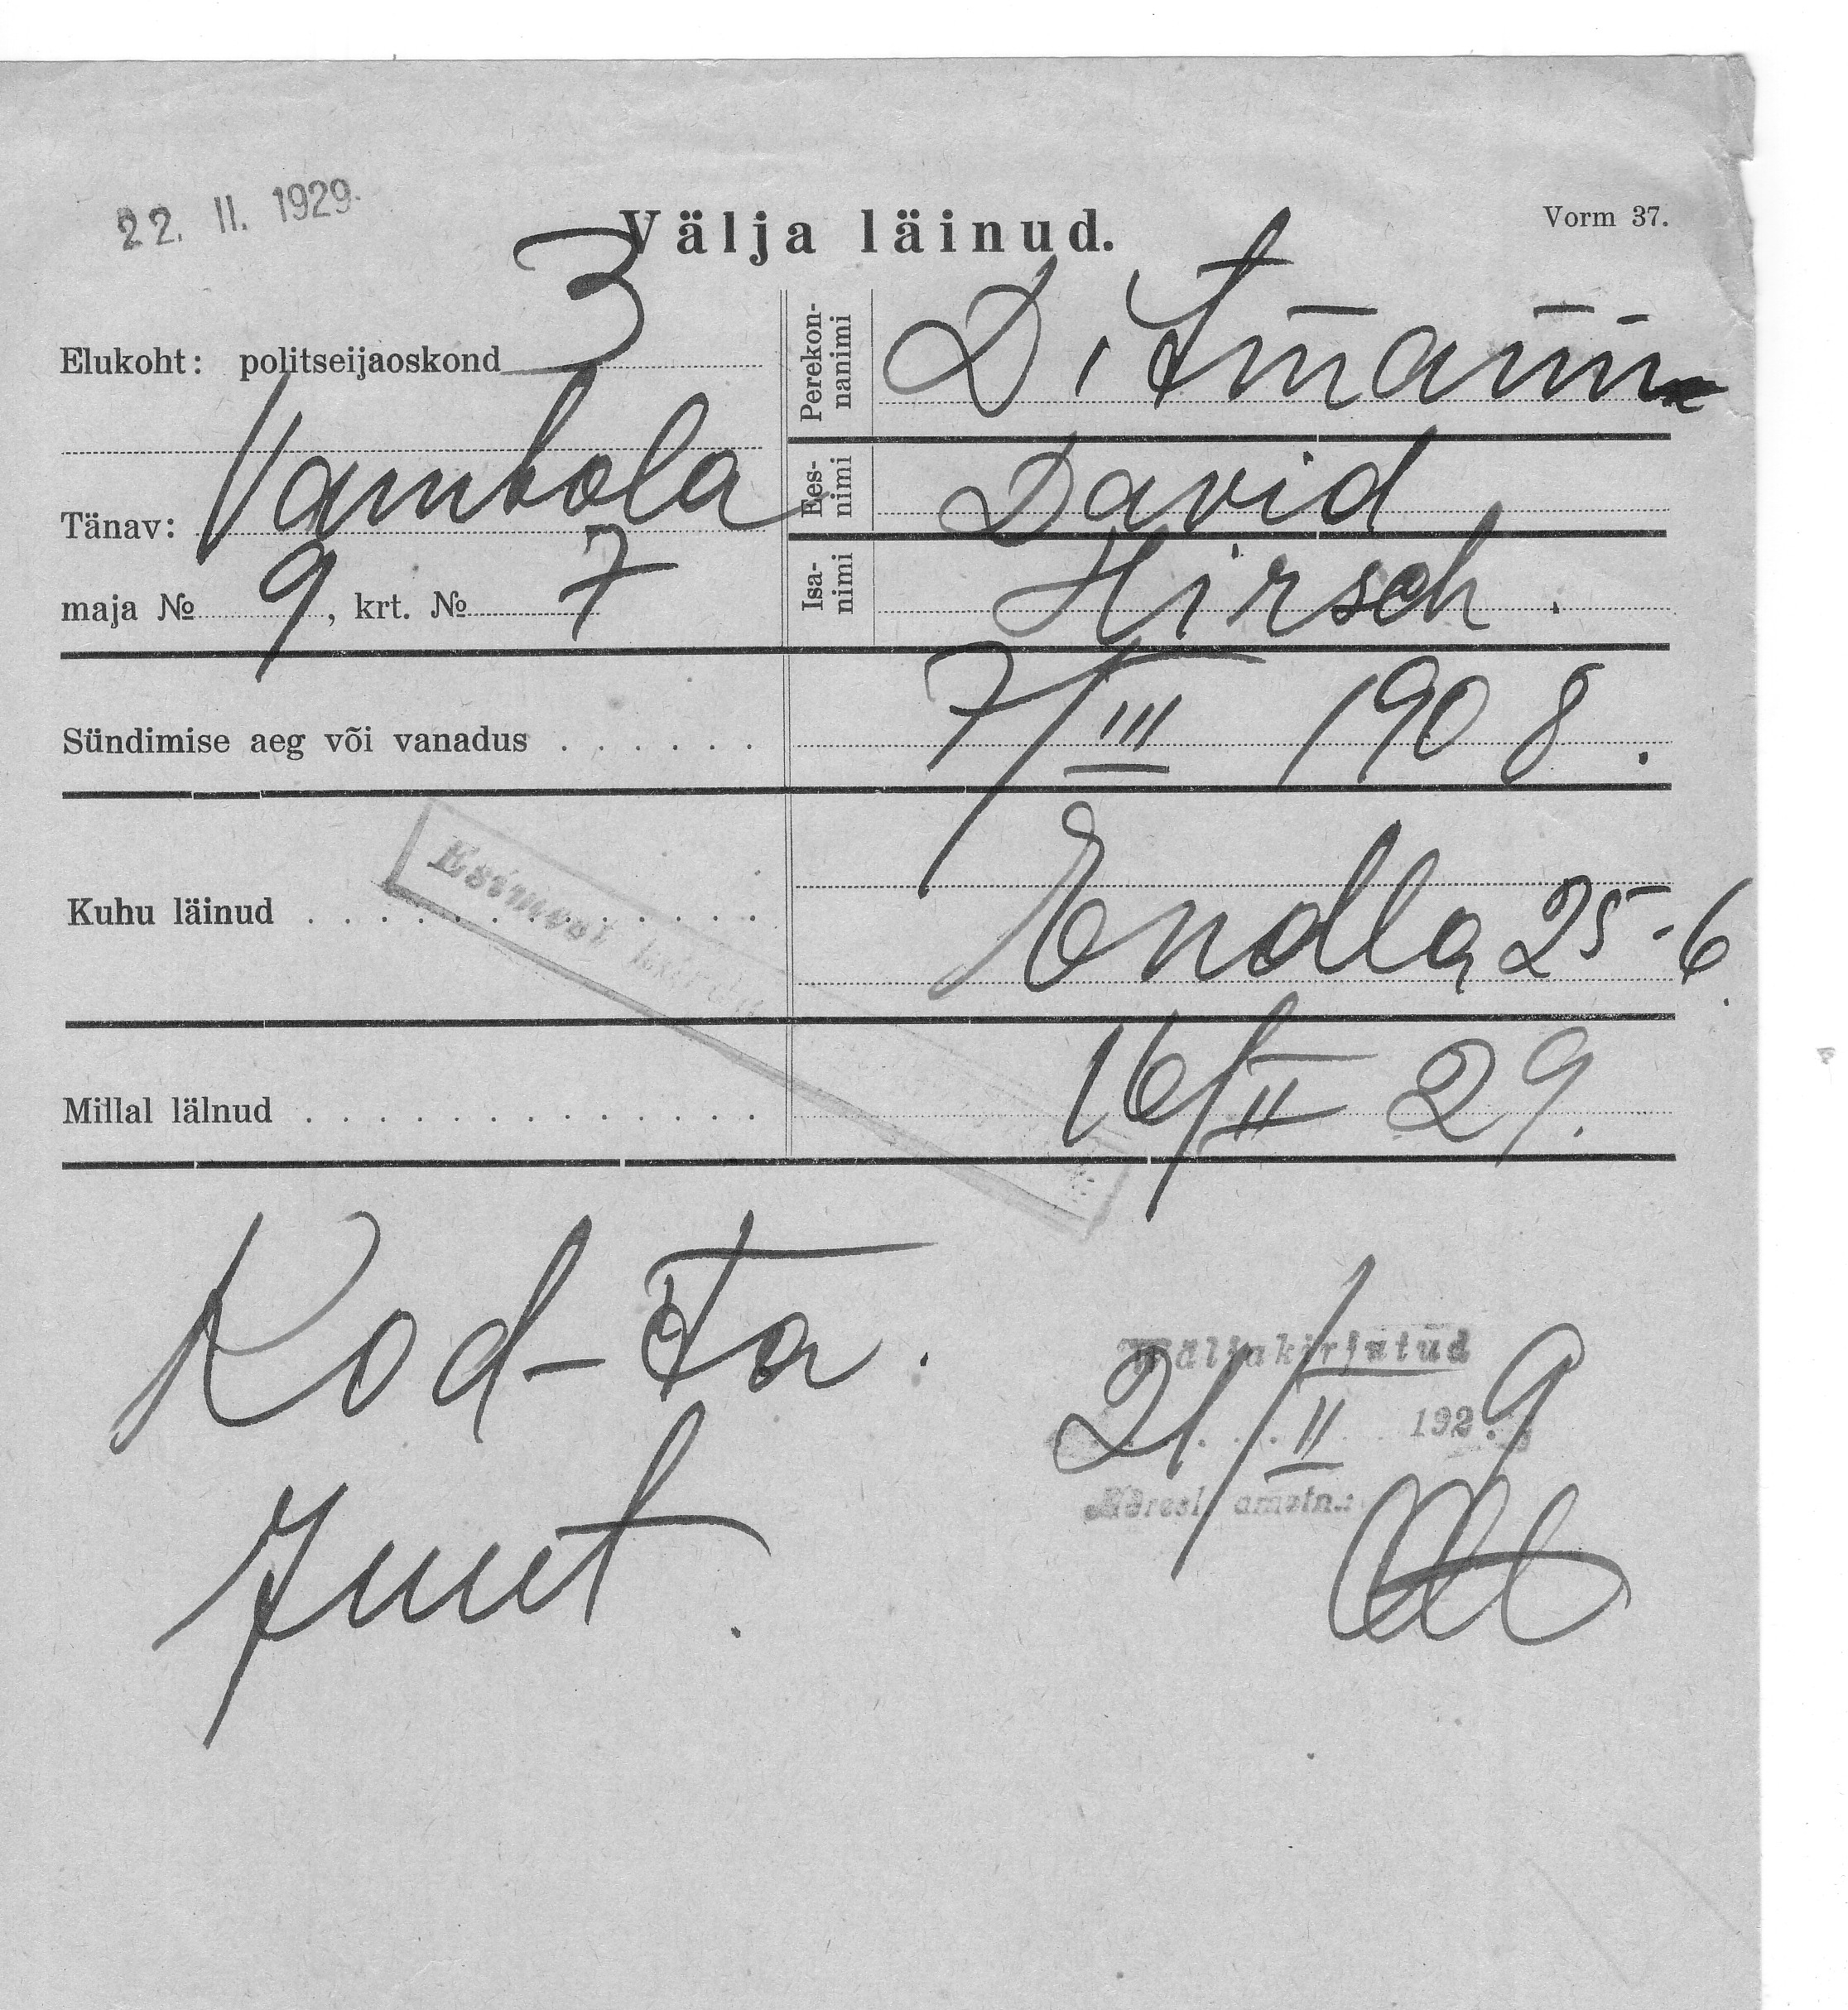 22. II. 1929.
Välja läinud.
Vorm 37.
Elukoht: politseijaoskond 3
Tänav: Vambola
maja № 9, krt. № 7
Perekon-
nanimi
Ditmann
Ees-
nimi
David
Isa-
nimi
Hirsch.
Sündimise aeg või vanadus . . . . . . 7/III 1908.
Kuhu läinud . . . . . . . . . . . . . . Endla 25-6.
Esimest
Millal lälnud . . . . . . . . . . . . . . 16/II 29.
Kod-ta.
Juut.
Wäljakirjutud
21/II 1929
Adresl. ametn.: